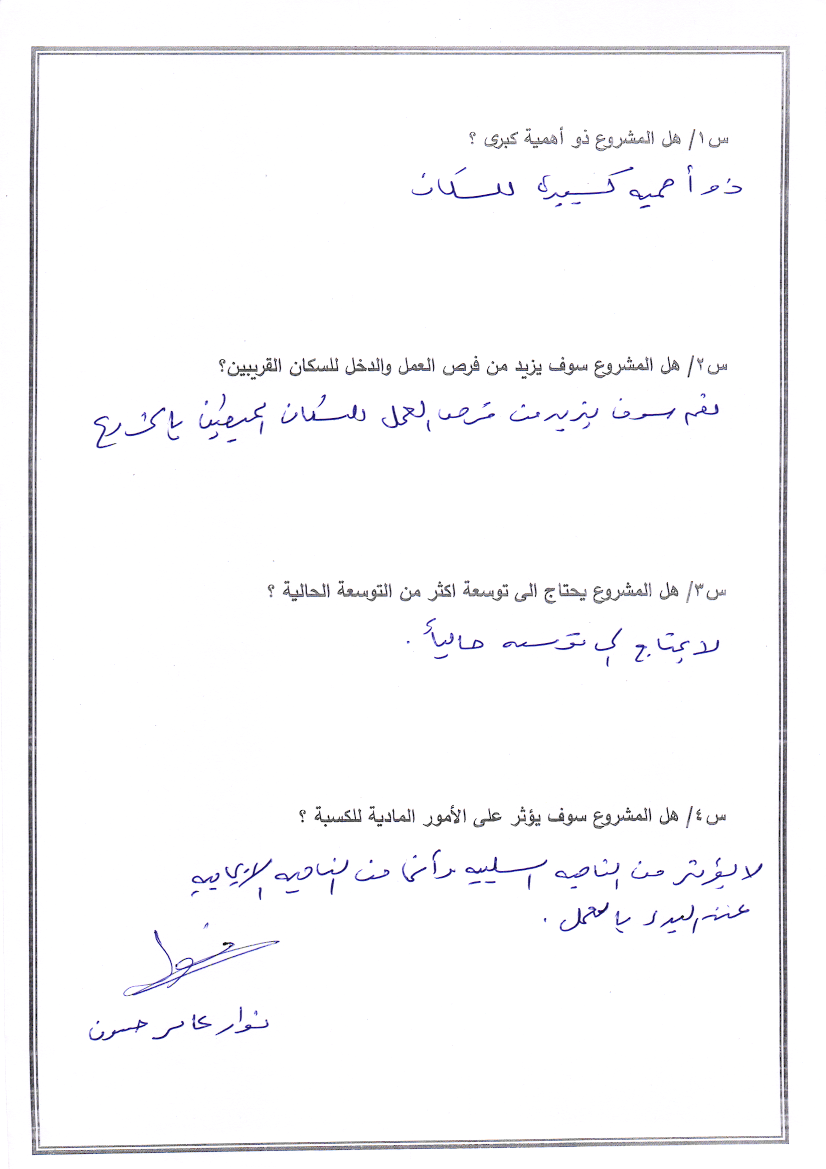 س١/ هل المشروع ذو أهمية كبرى ؟
ذو أهميه كبيره للسكان
س٢/ هل المشروع سوف يزيد من فرص العمل والدخل للسكان القريبين؟
نعم سوف يزيد من فرص العمل للسكان المحيطين بالمشروع
س٣/ هل المشروع يحتاج الى توسعة اكثر من التوسعة الحالية ؟
لا يحتاج الى توسعه حالياً .
س٤/ هل المشروع سوف يؤثر على الأمور المادية للكسبة ؟
لا يؤثر من الناحيه السلبيه وأنما من الناحيه الايجابيه
عند البدء بالعمل .
نوار عامر حسون